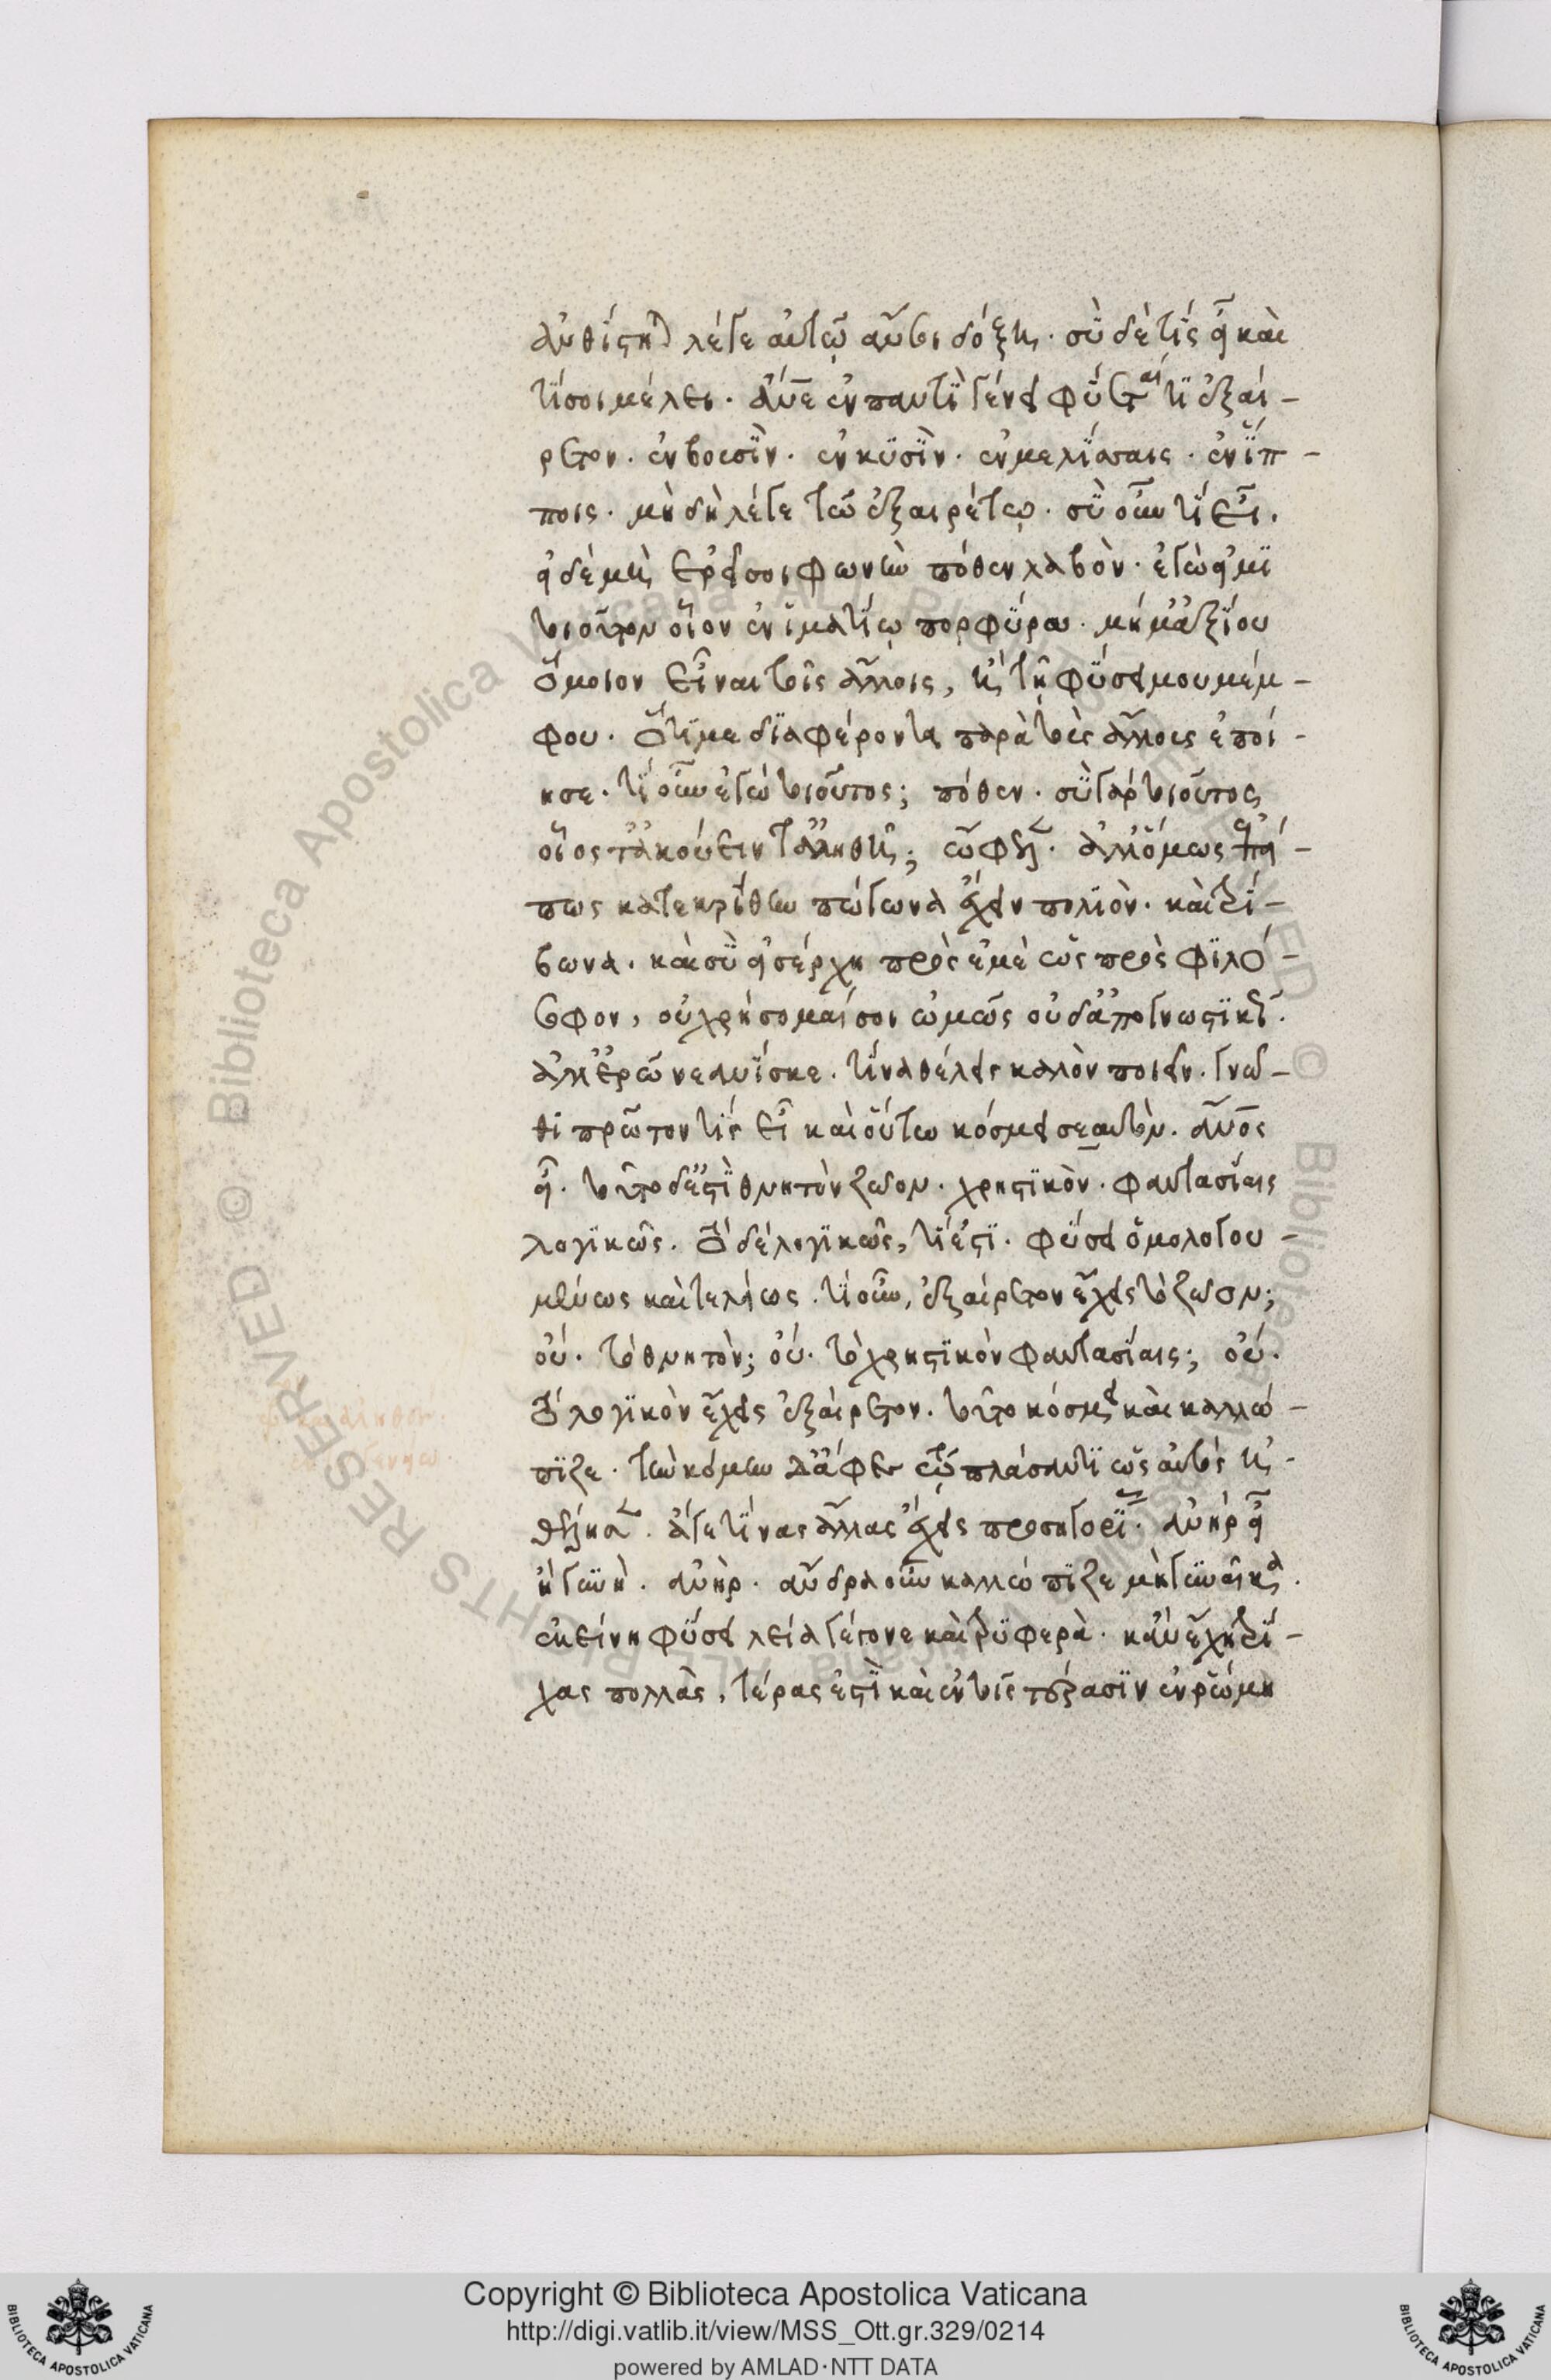 ἀνθίστηται λέγε αὐτῷ ἄν σοι δόξῃ. σὺ δὲ τίς εἶ καὶ
τί σοι μέλει. ἄνε ἐν παντὶ γένει φύεταί τι ἐξαί-
ρετον. ἐν βουσὶν. ἐν κυσὶν. ἐν μελίσσαις. ἐν ἵπ-
ποις. μὴ δὴ λέγε τῷ ἐξαιρέτῳ. σὺ οὖν τί εἶ.
εἰ δὲ μὴ ἐρεῖ σοι φωνὴν πόθεν λαβὸν. ἐγώ εἰμι
τοιοῦτον οἷον ἐν ἱματίῳ πορφύρα. μή μ' ἀξίου
ὅμοιον εἶναι τοῖς ἄλλοις, ἢ τῇ φύσει μου μέμ-
φου. ὅτι με διαφέροντα παρὰ τοὺς ἄλλους ἐποί-
ησε. τί οὖν ἐγὼ τοιοῦτος; πόθεν. σὺ γὰρ τοιοῦτος
οἷος τ' ἀκούειν τἀληθῆ; ὤφελεν. ἀλλ' ὅμως ἐπεί
πως κατεκρίθην πώγωνα ἔχειν πολιὸν. καὶ τρί-
βωνα. καὶ σὺ εἰσέρχῃ πρὸς ἐμὲ ὡς πρὸς φιλό-
σοφον, οὐ χρήσομαί σοι ὠμῶς οὐδ' ἀπογνωστικῶς.
ἀλλ' ἐρῶ νεανίσκε. τίνα θέλεις καλὸν ποιεῖν. γνῶ-
θι πρῶτον τίς εἶ καὶ οὕτω κόσμει σεαυτὸν. ἄνος
εἶ. τοῦτο δ' ἐστὶ θνητὸν ζῶον. χρηστικὸν. φαντασίαις
λογικῶς. τὸ δὲ λογικῶς, τί ἐστι. φύσει ὁμολογου-
μένως καὶ τελέως. τί οὖν, ἐξαίρετον ἔχεις τὸ ζῶον;
οὔ. τὸ θνητὸν; οὔ. τὸ χρηστικὸν φαντασίαις; οὔ.
τὸ λογικὸν ἔχεις ἐξαίρετον. τοῦτο κόσμει καὶ καλλώ-
πιζε. τὴν κόμην δ' ἄφες τῷ πλάσαντι ὡς αὐτὸς ἠ-
θέλησεν. ἄγε τίνας ἄλλας ἔχεις προσηγορίας. ἀνὴρ εἶ
ἢ γυνή. ἀνὴρ. ἄνδρα οὖν καλλώπιζε μὴ γυναῖκα.
ἐκείνη φύσει λεία γέγονε καὶ τρυφερὰ. κἂν ἔχῃ τρί-
χας πολλὰς, τέρας ἐστὶ καὶ ἐν τοῖς τέρασιν ἐν ῥώμῃ
Copyright © Biblioteca Apostolica Vaticana
http://digi.vatlib.it/view/MSS_Ott.gr.329/0214
powered by AMLAD·NTT DATA